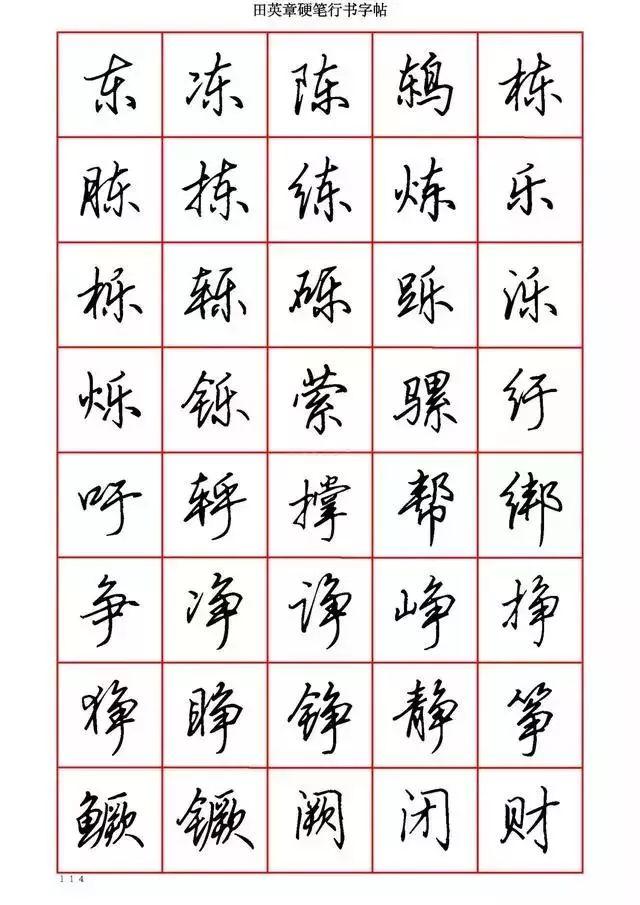 田英章硬笔行书字帖
东冻陈鸫栋
胨拣练炼乐
栎轹砾跞泺
烁铄萦骡纡
吁轷撑帮绑
争净诤峥挣
狰睁铮静筝
鳜镢阙闭财
114